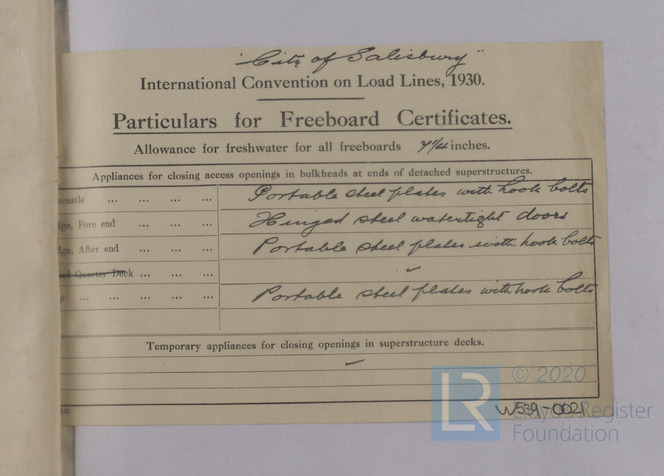 "City of Salisbury"
International Convention on Load Lines, 1930.
Particulars for Freeboard Certificates.
Allowance for freshwater for all freeboards 7¼ inches.
Appliances for closing access openings in bulkheads at ends of detached superstructures.
ecastle ... ... ... ... Portable steel plates with hook bolts
dge, Fore end ... ... ... Hinged steel watertight doors
dge, After end ... ... ... Portable steel plates with hook bolts
Quarter Deck ... ... ... ✓
... ... ... ... Portable steel plates with hook bolts
Temporary appliances for closing openings in superstructure decks.
✓
LR © 2020
W539-0021
Lloyd's Register
Foundation